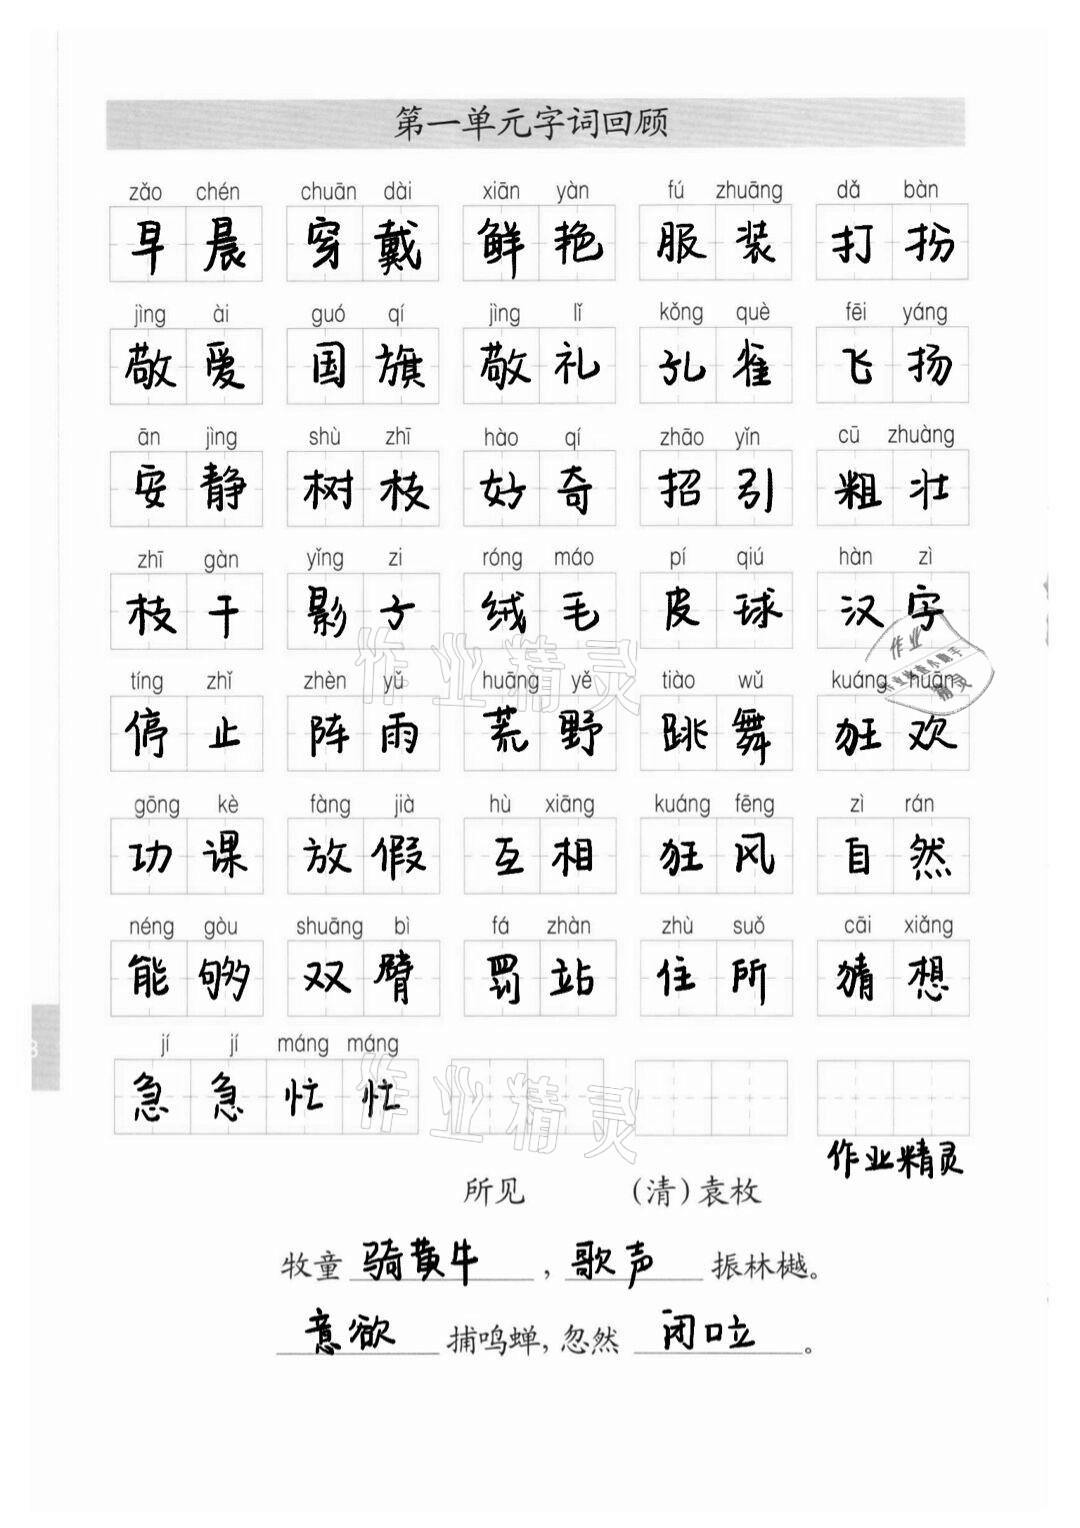 第一单元字词回顾
zǎo chén chuān dài xiān yàn fú zhuāng dǎ bàn
早晨 穿戴 鲜艳 服装 打扮
jìng ài guó qí jìng lǐ kǒng què fēi yáng
敬爱 国旗 敬礼 孔雀 飞扬
ān jìng shù zhī hào qí zhāo yǐn cū zhuàng
安静 树枝 好奇 招引 粗壮
zhī gàn yǐng zi róng máo pí qiú hàn zì
枝干 影子 绒毛 皮球 汉字
tíng zhǐ zhèn yǔ huāng yě tiào wǔ kuáng huān
停止 阵雨 荒野 跳舞 狂欢
gōng kè fàng jià hù xiāng kuáng fēng zì rán
功课 放假 互相 狂风 自然
néng gòu shuāng bì fá zhàn zhù suǒ cāi xiǎng
能够 双臂 罚站 住所 猜想
jí jí máng máng
急急忙忙
作业精灵
所见 (清)袁枚
牧童骑黄牛,歌声振林樾。
意欲捕鸣蝉,忽然闭口立。
作业精灵
作业精灵
作业
精灵